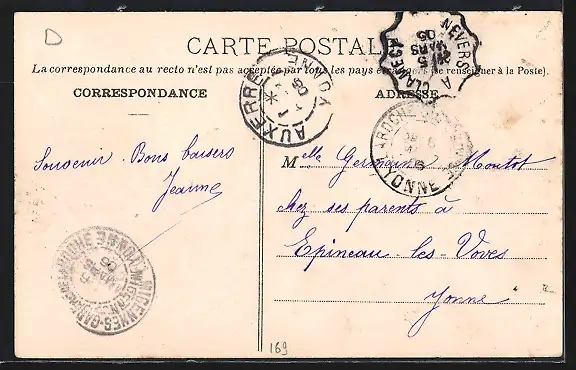 D
CARTE POSTALE
La correspondance au recto n'est pas acceptée par tous les pays étrangers (se renseigner à la Poste).
CORRESPONDANCE
ADRESSE
NEVERS A CLAMECY
25
MARS
05
AUXERRE YONNE
YONNE
Souvenir. Bons baisers
Jeanne
Melle Germaine Moutot
chez ses parents à
Epineau-les-Voves
Yonne
MIGENNES
169